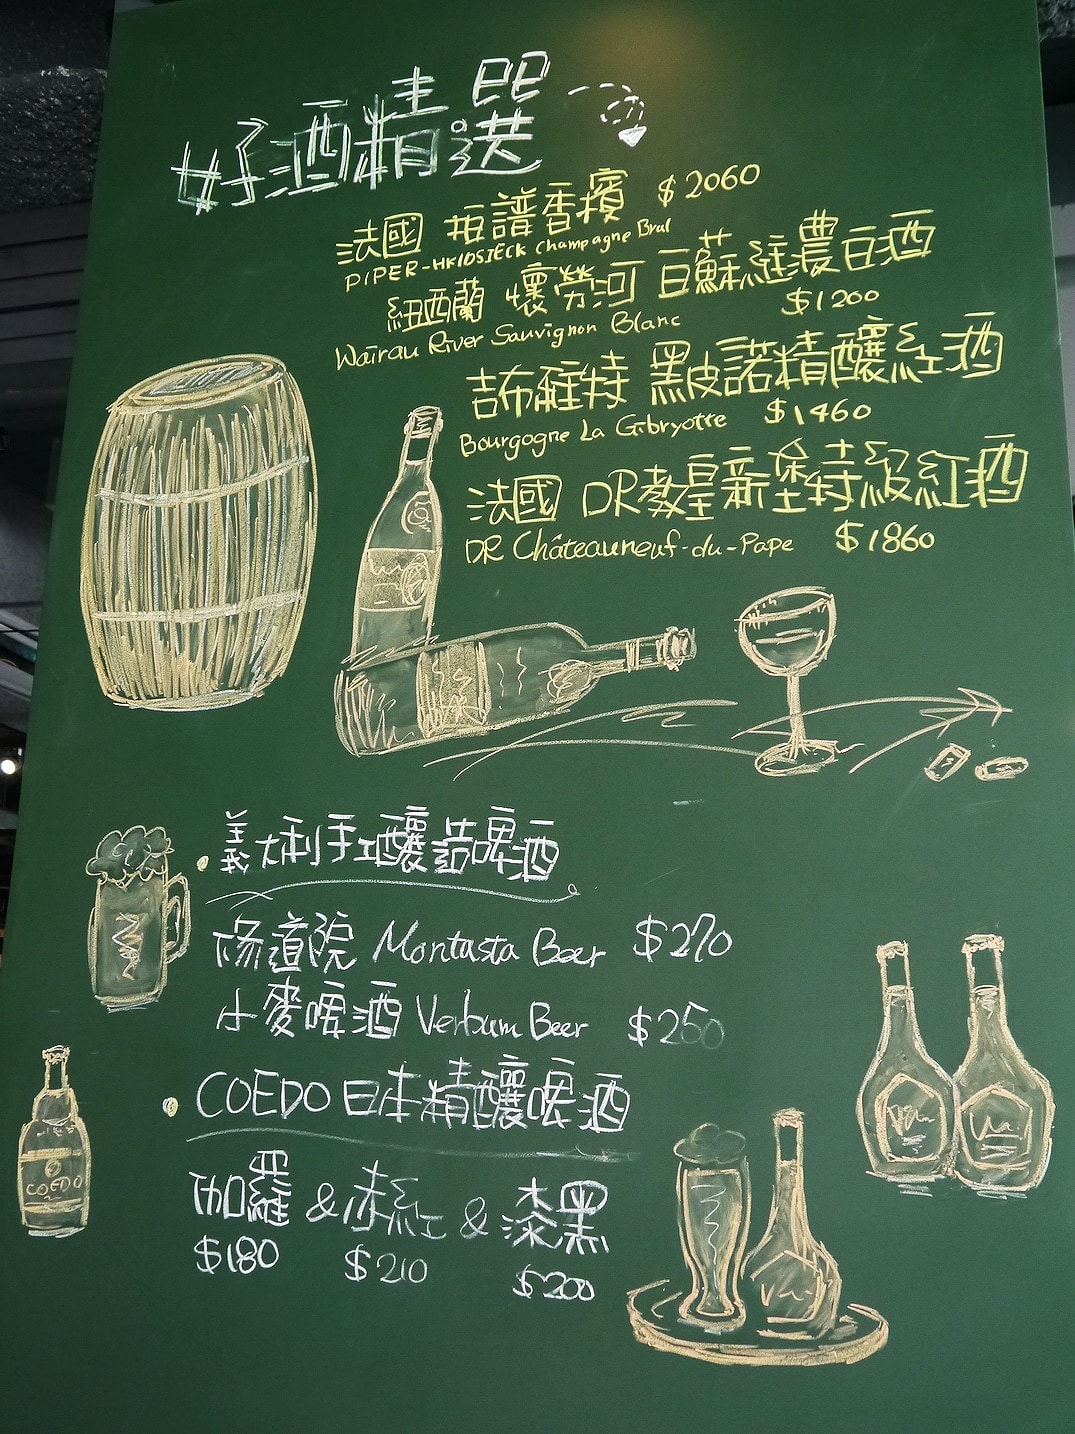 好酒精選
法國 珀譜香檳 $2060
PIPER-HKIDSIECK Champagne Brut
紐西蘭 懷勞河 白蘇維濃白酒
Wairau River Sauvignon Blanc $1200
吉布維特 黑皮諾精釀紅酒
Bourgogne La Gibryotte $1460
法國 DR教皇新堡特級紅酒
DR Châteauneuf-du-Pape $1860
義大利手工釀造啤酒
修道院 Montasta Beer $270
小麥啤酒 Verbum Beer $250
COEDO 日本精釀啤酒
伽羅 & 赤紅 & 漆黑
$180 $210 $200
COEDO